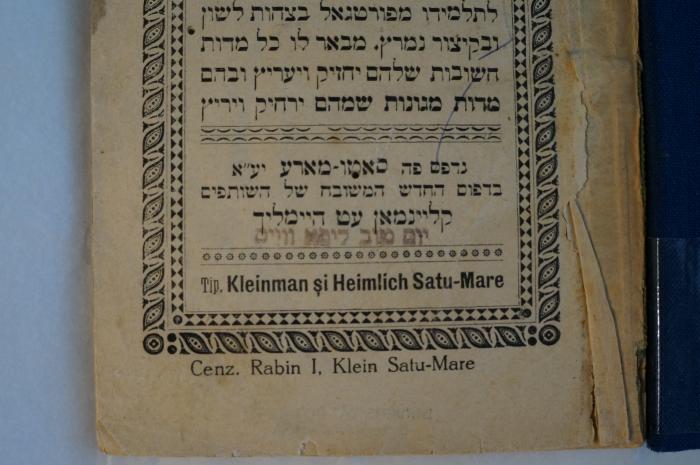 לתלמידו מפורטגאל בצחות לשון
ובקיצור נמרץ. מבאר לו כל מדות
חשובות שלהם יחזיק ויעריץ ובהם
מדות מגונות שמהם ירחיק ויריץ
נדפס פה סאטו-מארע יע"א
בדפוס החדש המשובח של השותפים
קליינמאן עט היימליך
יום טוב ליפא ווייס
Tip. Kleinman și Heimlich Satu-Mare
Cenz. Rabin I. Klein Satu-Mare